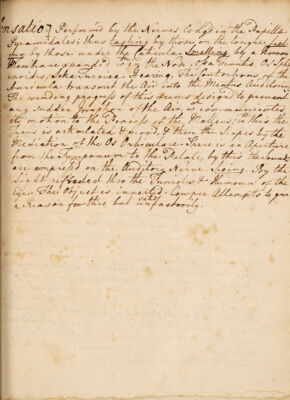 ensatio] Performed by the Nerves lodg'd in the Papillæ
Pyramidales; thus tasting by those on the tongue, feel
ing by those under the Cuticula. Smelling by a Nervous
Membrane expanded in the Nose,
Hearing. The Contortions of the
Auricula transmit the Air into the Meatus Auditorius
The winding passage of this serves to
any sudden of the Air is communicated
the motion to the Process of the Malleus; to this the
Incus is articulated & & then the Stapes by the
Mediation of the Os Orbiculare. There is an Aperture
from the Tympanum to the Palate, by this the
are impress'd on the Auditory Nerve. Seeing. By the
Light refracted thro the Tunicles & Humours of the
Eye. The Object is inverted. Cowper Attempts to give
a Reason for this, but unsatisfactorily.